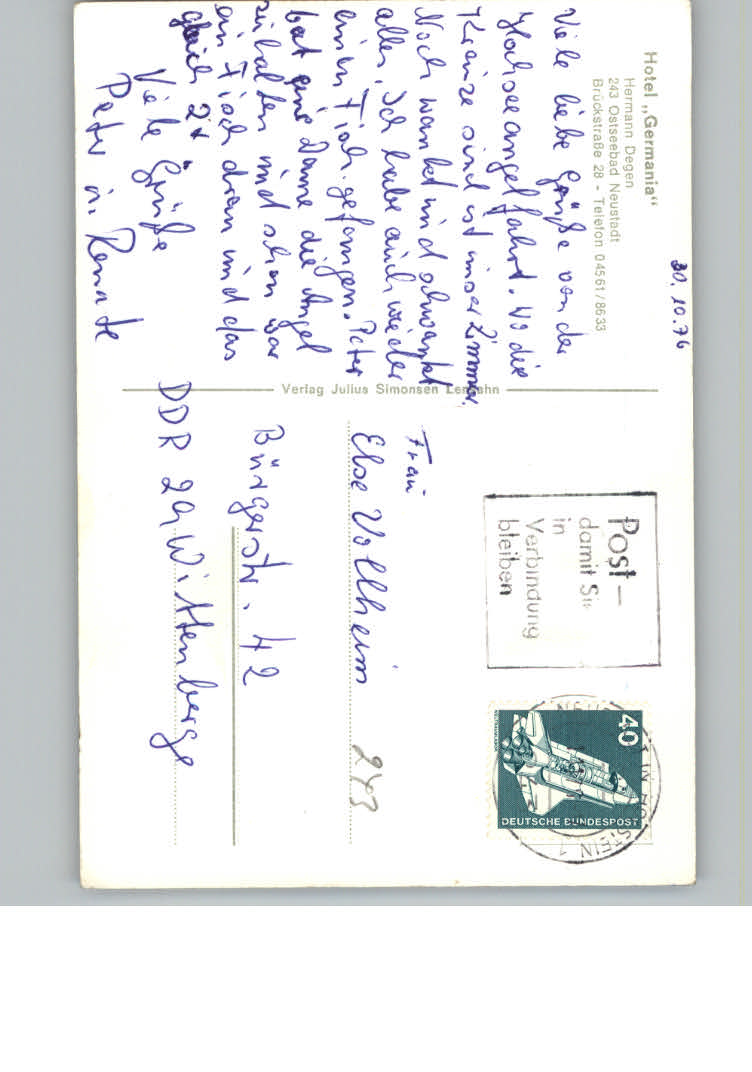 30.10.76
Hotel „Germania“
Hermann Degen
243 Ostseebad Neustadt
Brückstraße 28 - Telefon 04561/8633
Viele liebe Grüße von der
Hochseeangelfahrt. Wo die
Kreuze sind ist unser Zimmer.
Noch wankt und schwankt
alles. Ich habe auch wieder
einen Fisch gefangen. Peter
bat eine Dame die Angel
zu halten und schon war
ein Fisch dran und das
gleich 2x
Viele Grüße
Peter u. Renate
Verlag Julius Simonsen
Post–
damit Sie
in
Verbindung
bleiben
40
DEUTSCHE BUNDESPOST
Frau
Else Vollheim
Bürgerstr. 42
DDR 29 Wittenberge
243